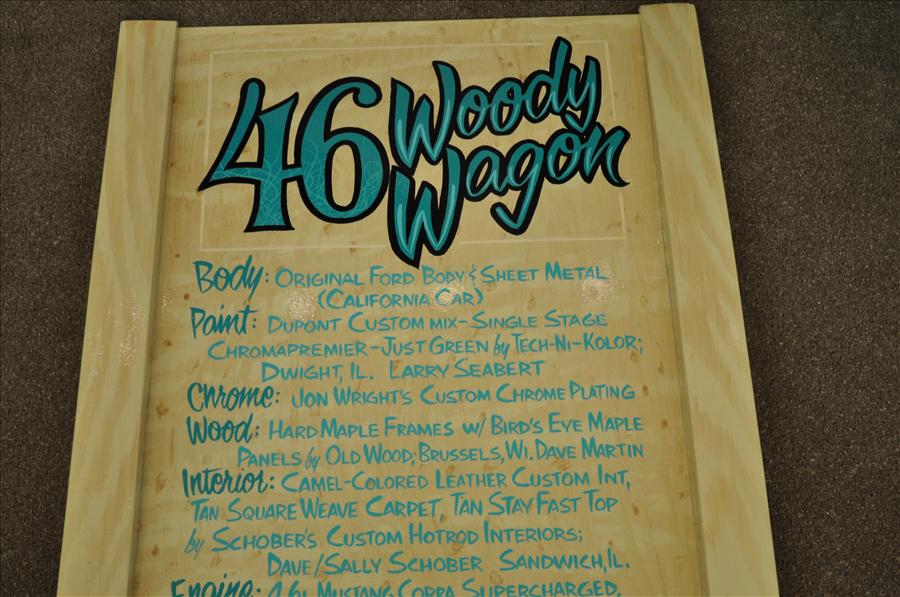 46 Woody
Wagon
Body: Original Ford Body & Sheet Metal
(California Car)
Paint: Dupont Custom mix-Single Stage
Chromapremier-Just Green by Tech-Ni-Kolor;
Dwight, Il. Larry Seabert
Chrome: Jon Wright's Custom Chrome Plating
Wood: Hard Maple Frames w/ Bird's Eye Maple
Panels by Old Wood; Brussels, Wi. Dave Martin
Interior: Camel-Colored Leather Custom Int,
Tan Square Weave Carpet, Tan Stay Fast Top
by Schober's Custom Hotrod Interiors;
Dave/Sally Schober Sandwich, Il.
Engine: 4.6L Mustang Cobra Supercharged,